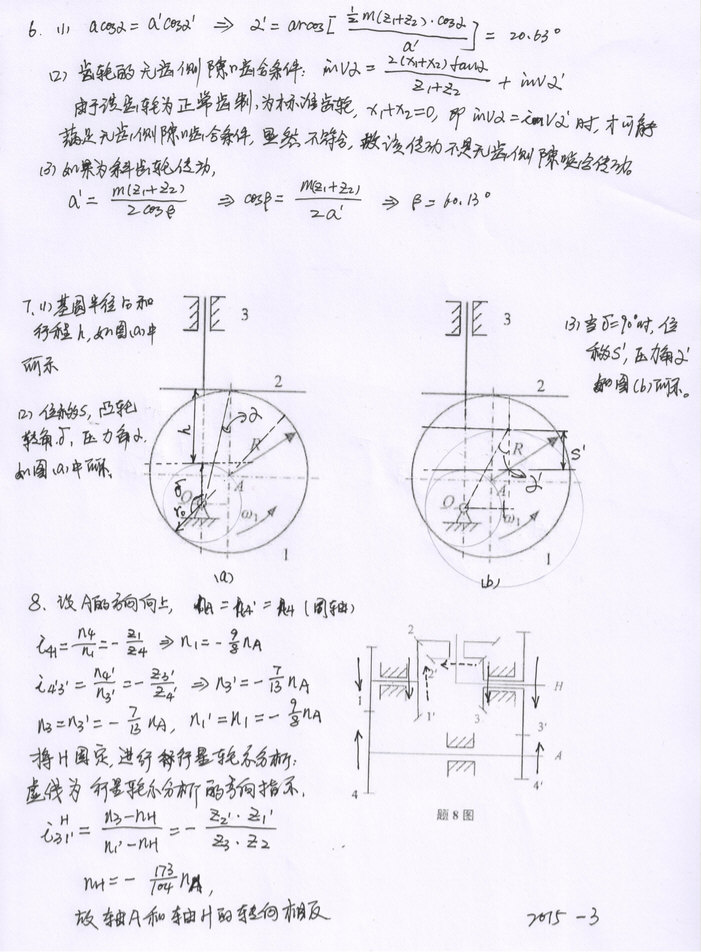 6. (1) a cosα = a'cosα' ⇒ α' = arccos[ ½m(z₁+z₂)·cosα / a' ] = 20.63°
(2) 齿轮的无齿侧隙啮合条件: invα = 2(x₁+x₂)tanα / z₁+z₂ + invα'
由于该齿轮为正常齿制,为标准齿轮, x₁+x₂=0, 即 invα=invα'时,才可能
满足无齿侧隙啮合条件,显然不符合,故该传动不是无齿侧隙啮合传动。
(3) 如果为斜齿轮传动,
a' = m(z₁+z₂) / 2cosβ ⇒ cosβ = m(z₁+z₂) / 2a' ⇒ β = 60.13°
7. (1) 基圆半径r₀和
行程h, 如图(a)中
所示
(2) 位移S, 凸轮
转角δ, 压力角α.
如图(a)中所示.
3
2
α
h
R
A
δ
O
r₀
ω₁
1
(a)
3
2
R
S'
α'
A
O
ω₁
1
(b)
(3) 当δ=90°时, 位
移S', 压力角α'
如图(b)所示。
8. 设A的方向向上, nA = n4' = n4 (同轴)
i₄₁ = n₄/n₁ = -z₁/z₄ ⇒ n₁ = -9/8 nA
i₄'₃' = n₄'/n₃' = -z₃'/z₄' ⇒ n₃' = -7/13 nA
n₃ = n₃' = -7/13 nA, n₁' = n₁ = -9/8 nA
将H固定,进行行星轮系分析:
虚线为行星轮系分析的方向指示.
i₃₁'ᴴ = n₃-nH / n₁'-nH = - z₂'·z₁' / z₃·z₂
nH = - 173/104 nA,
故轴A和轴H的转向相反
2
2'
1
1'
3
H
3'
A
4
4'
题 8 图
2015 -3